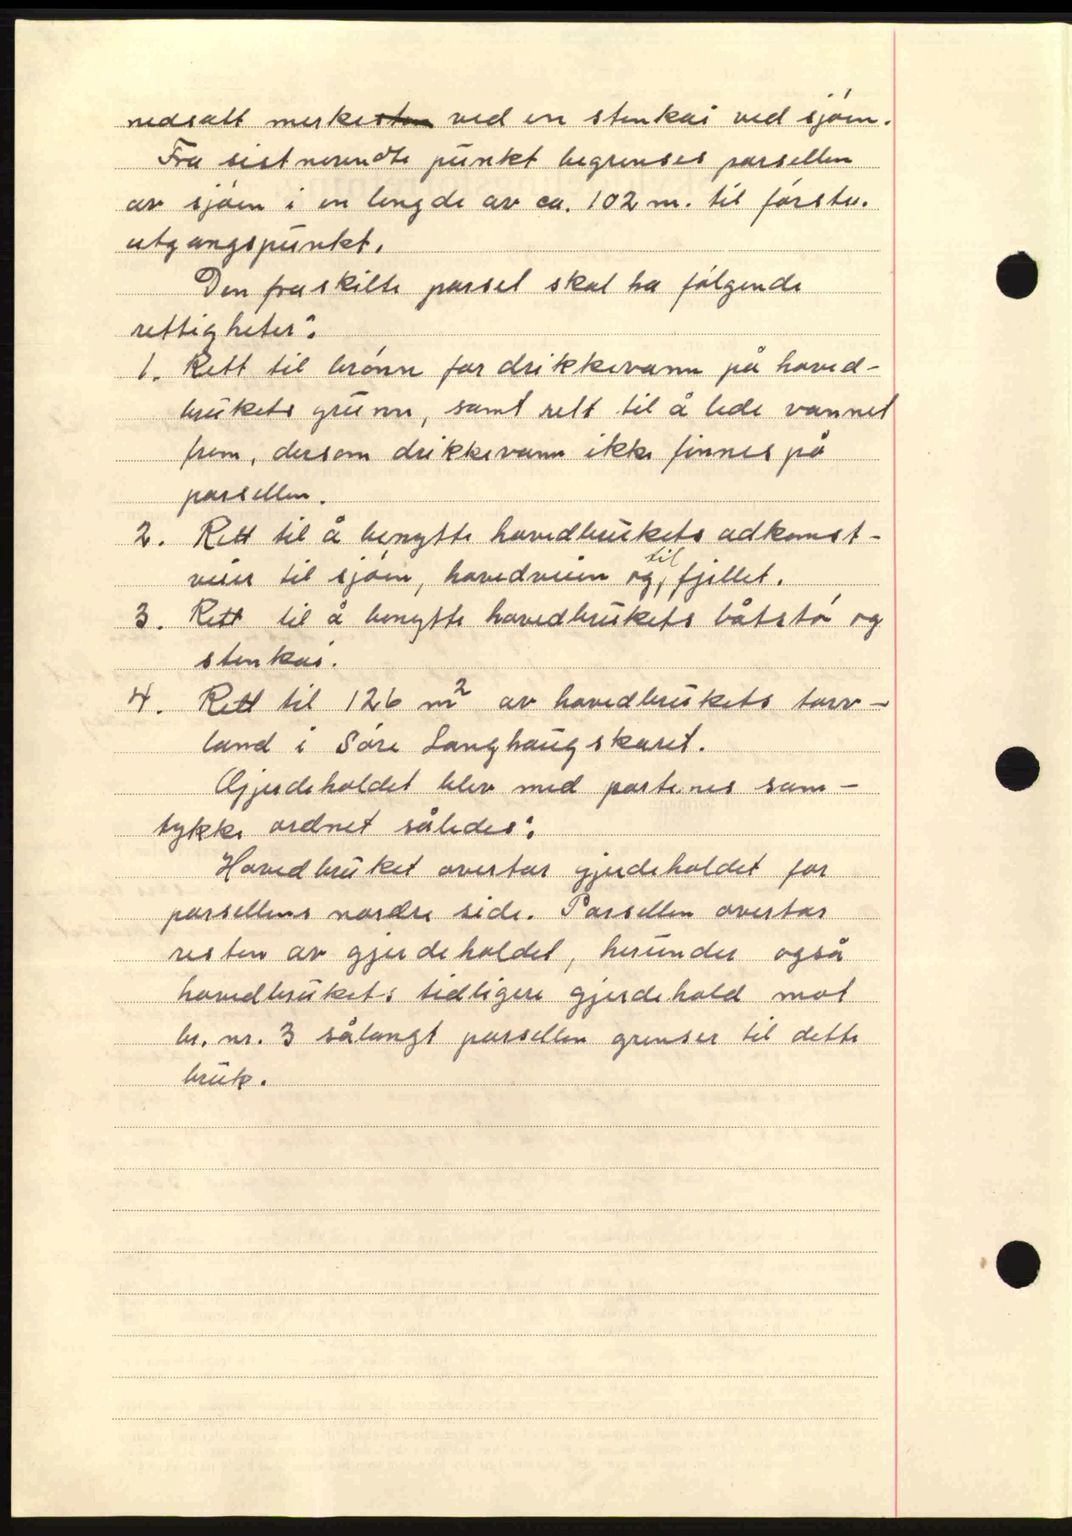 nedsatt merkesten ved en stenkai ved sjóen.
Fra sistnevndte punkt begrenses parsellen
av sjóen i en lengde av ca. 102 m. til fórste.
utgangspunkt.
Den fraskilte parsel skal ha fólgende
rettigheter:
1. Rett til brónn for drikkevann på hoved-
brukets grunn, samt rett til å lede vannet
frem, dersom drikkevann ikke finnes på
parsellen.
2. Rett til å benytte hovedbrukets adkomst-
veier til sjóen, hovedveien og til fjellet.
3. Rett til å benytte hovedbrukets båtstó og
stenkai.
4. Rett til 126 m² av hovedbrukets torv-
land i Sóre Langhaugskaret.
Gjerdeholdet blev med partenes sam-
tykke ordnet således:
Hovedbruket overtar gjerdeholdet for
parsellens nordre side. Parsellen overtar
resten av gjerdeholdet, herunder også
hovedbrukets tidligere gjerdehold mot
br. nr. 3 sålangt parsellen grenser til dette
bruk.